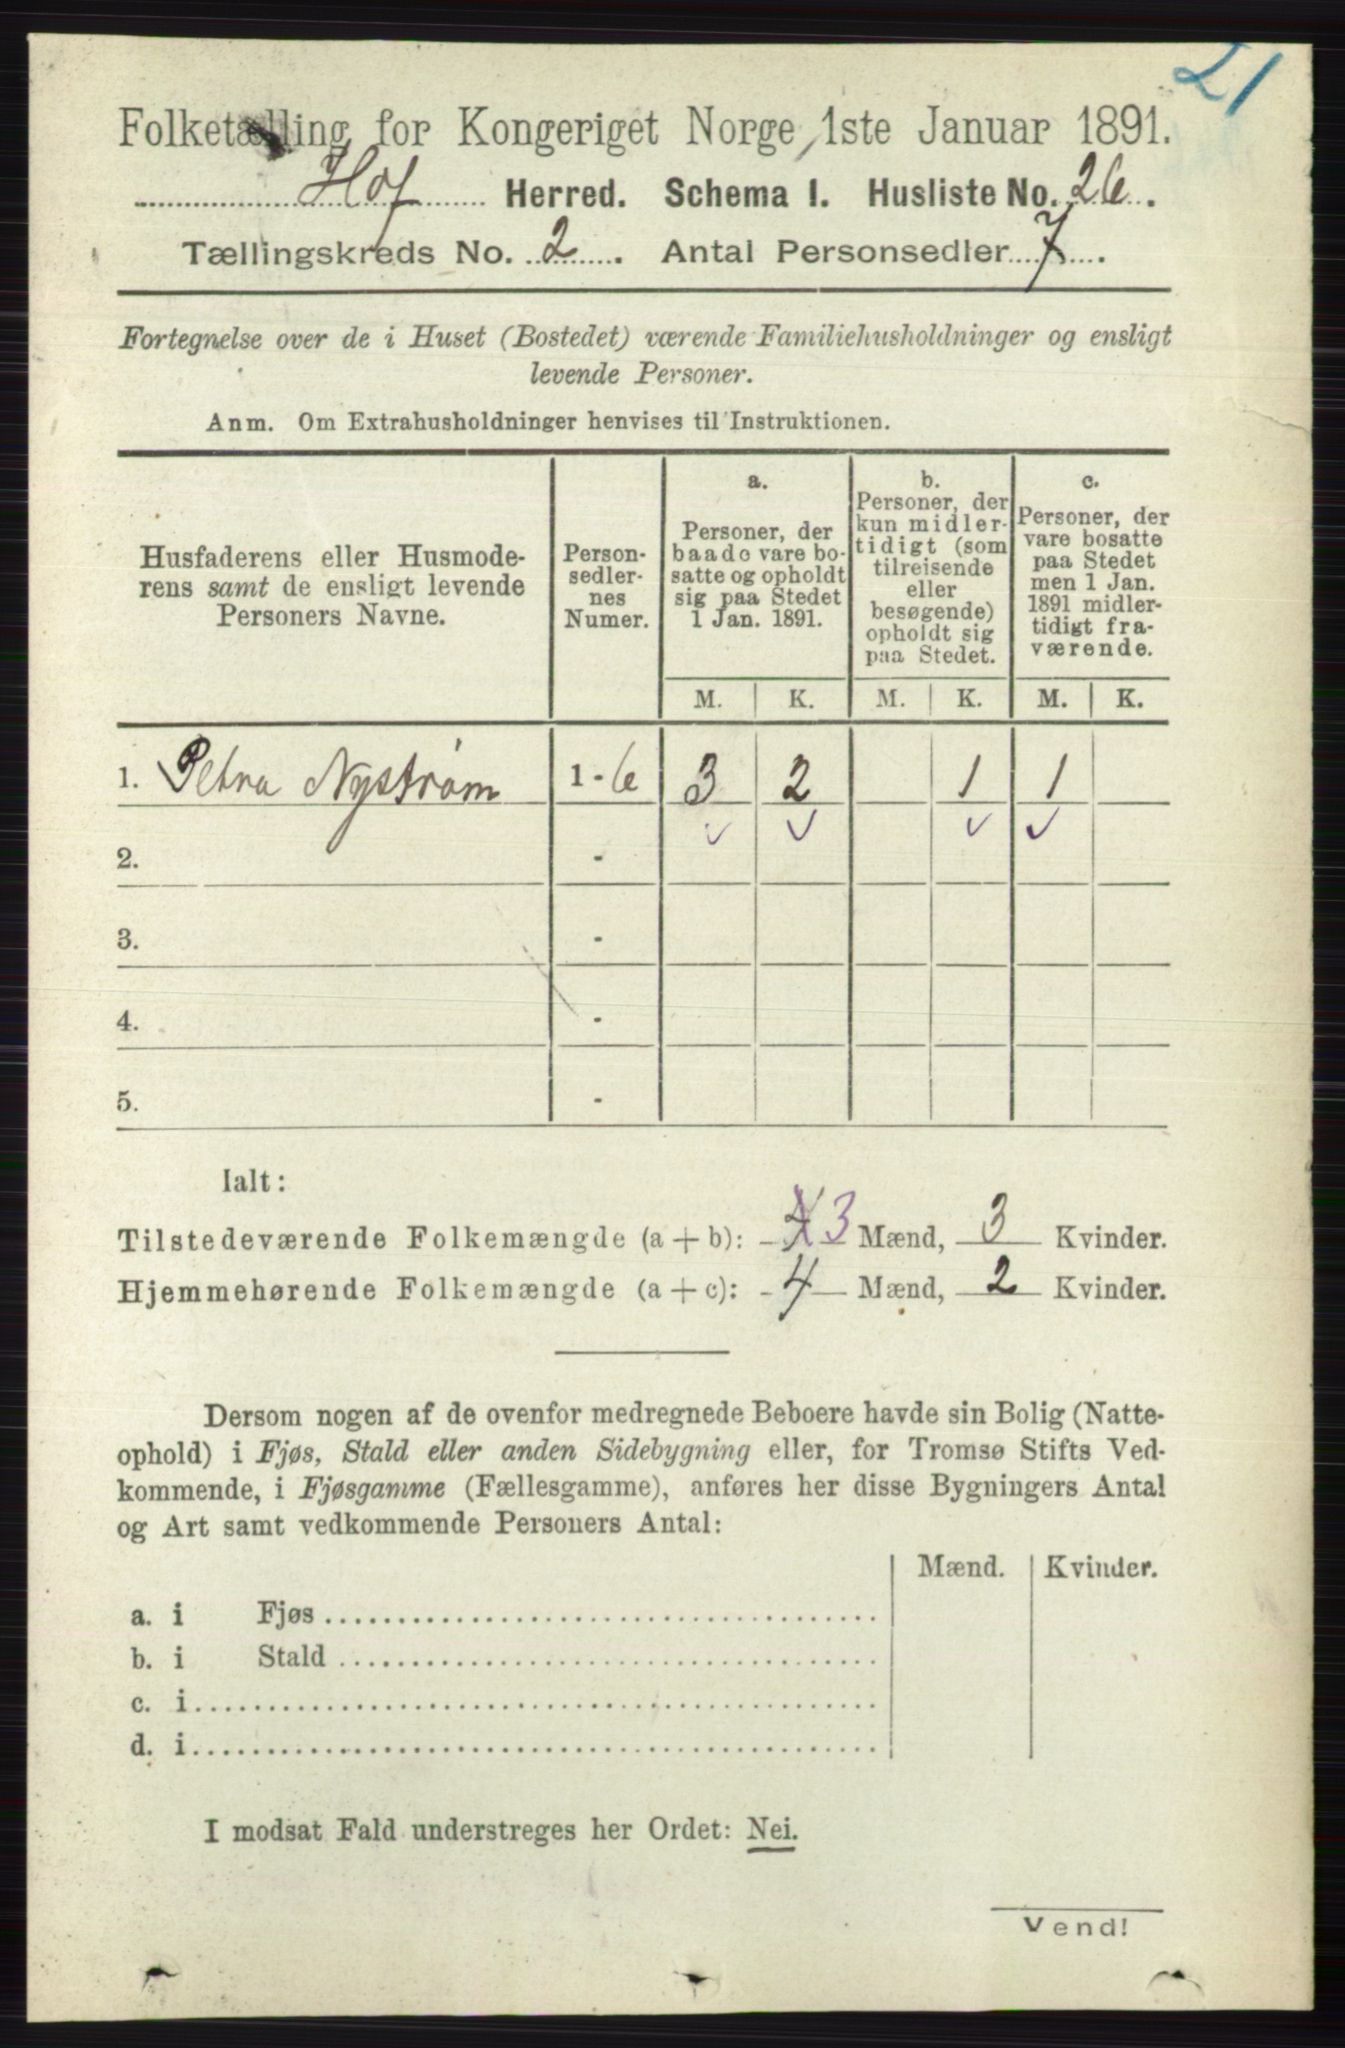 21
Folketælling for Kongeriget Norge 1ste Januar 1891.
Hof Herred. Schema I. Husliste No. 26.
Tællingskreds No. 2. Antal Personsedler 7.
Fortegnelse over de i Huset (Bostedet) værende Familiehusholdninger og ensligt
levende Personer.
Anm. Om Extrahusholdninger henvises til Instruktionen.
Husfaderens eller Husmode-
rens samt de ensligt levende
Personers Navne.
Person-
sedler-
nes
Numer.
a.
Personer, der
baade vare bo-
satte og opholdt
sig paa Stedet
1 Jan. 1891.
b.
Personer, der
kun midler-
tidigt (som
tilreisende
eller
besøgende)
opholdt sig
paa Stedet.
c.
Personer, der
vare bosatte
paa Stedet
men 1 Jan.
1891 midler-
tidigt fra-
værende.
M. K. M. K. M. K.
1. Petra Nystrøm 1 - 6 3 2 1 1
2. -
3. -
4. -
5. -
Ialt:
Tilstedeværende Folkemængde (a + b): 3 Mænd, 3 Kvinder.
Hjemmehørende Folkemængde (a + c): 4 Mænd, 2 Kvinder.
Dersom nogen af de ovenfor medregnede Beboere havde sin Bolig (Natte-
ophold) i Fjøs, Stald eller anden Sidebygning eller, for Tromsø Stifts Ved-
kommende, i Fjøsgamme (Fællesgamme), anføres her disse Bygningers Antal
og Art samt vedkommende Personers Antal:
Mænd. Kvinder.
a. i Fjøs
b. i Stald
c. i
d. i
I modsat Fald understreges her Ordet: Nei.
Vend!